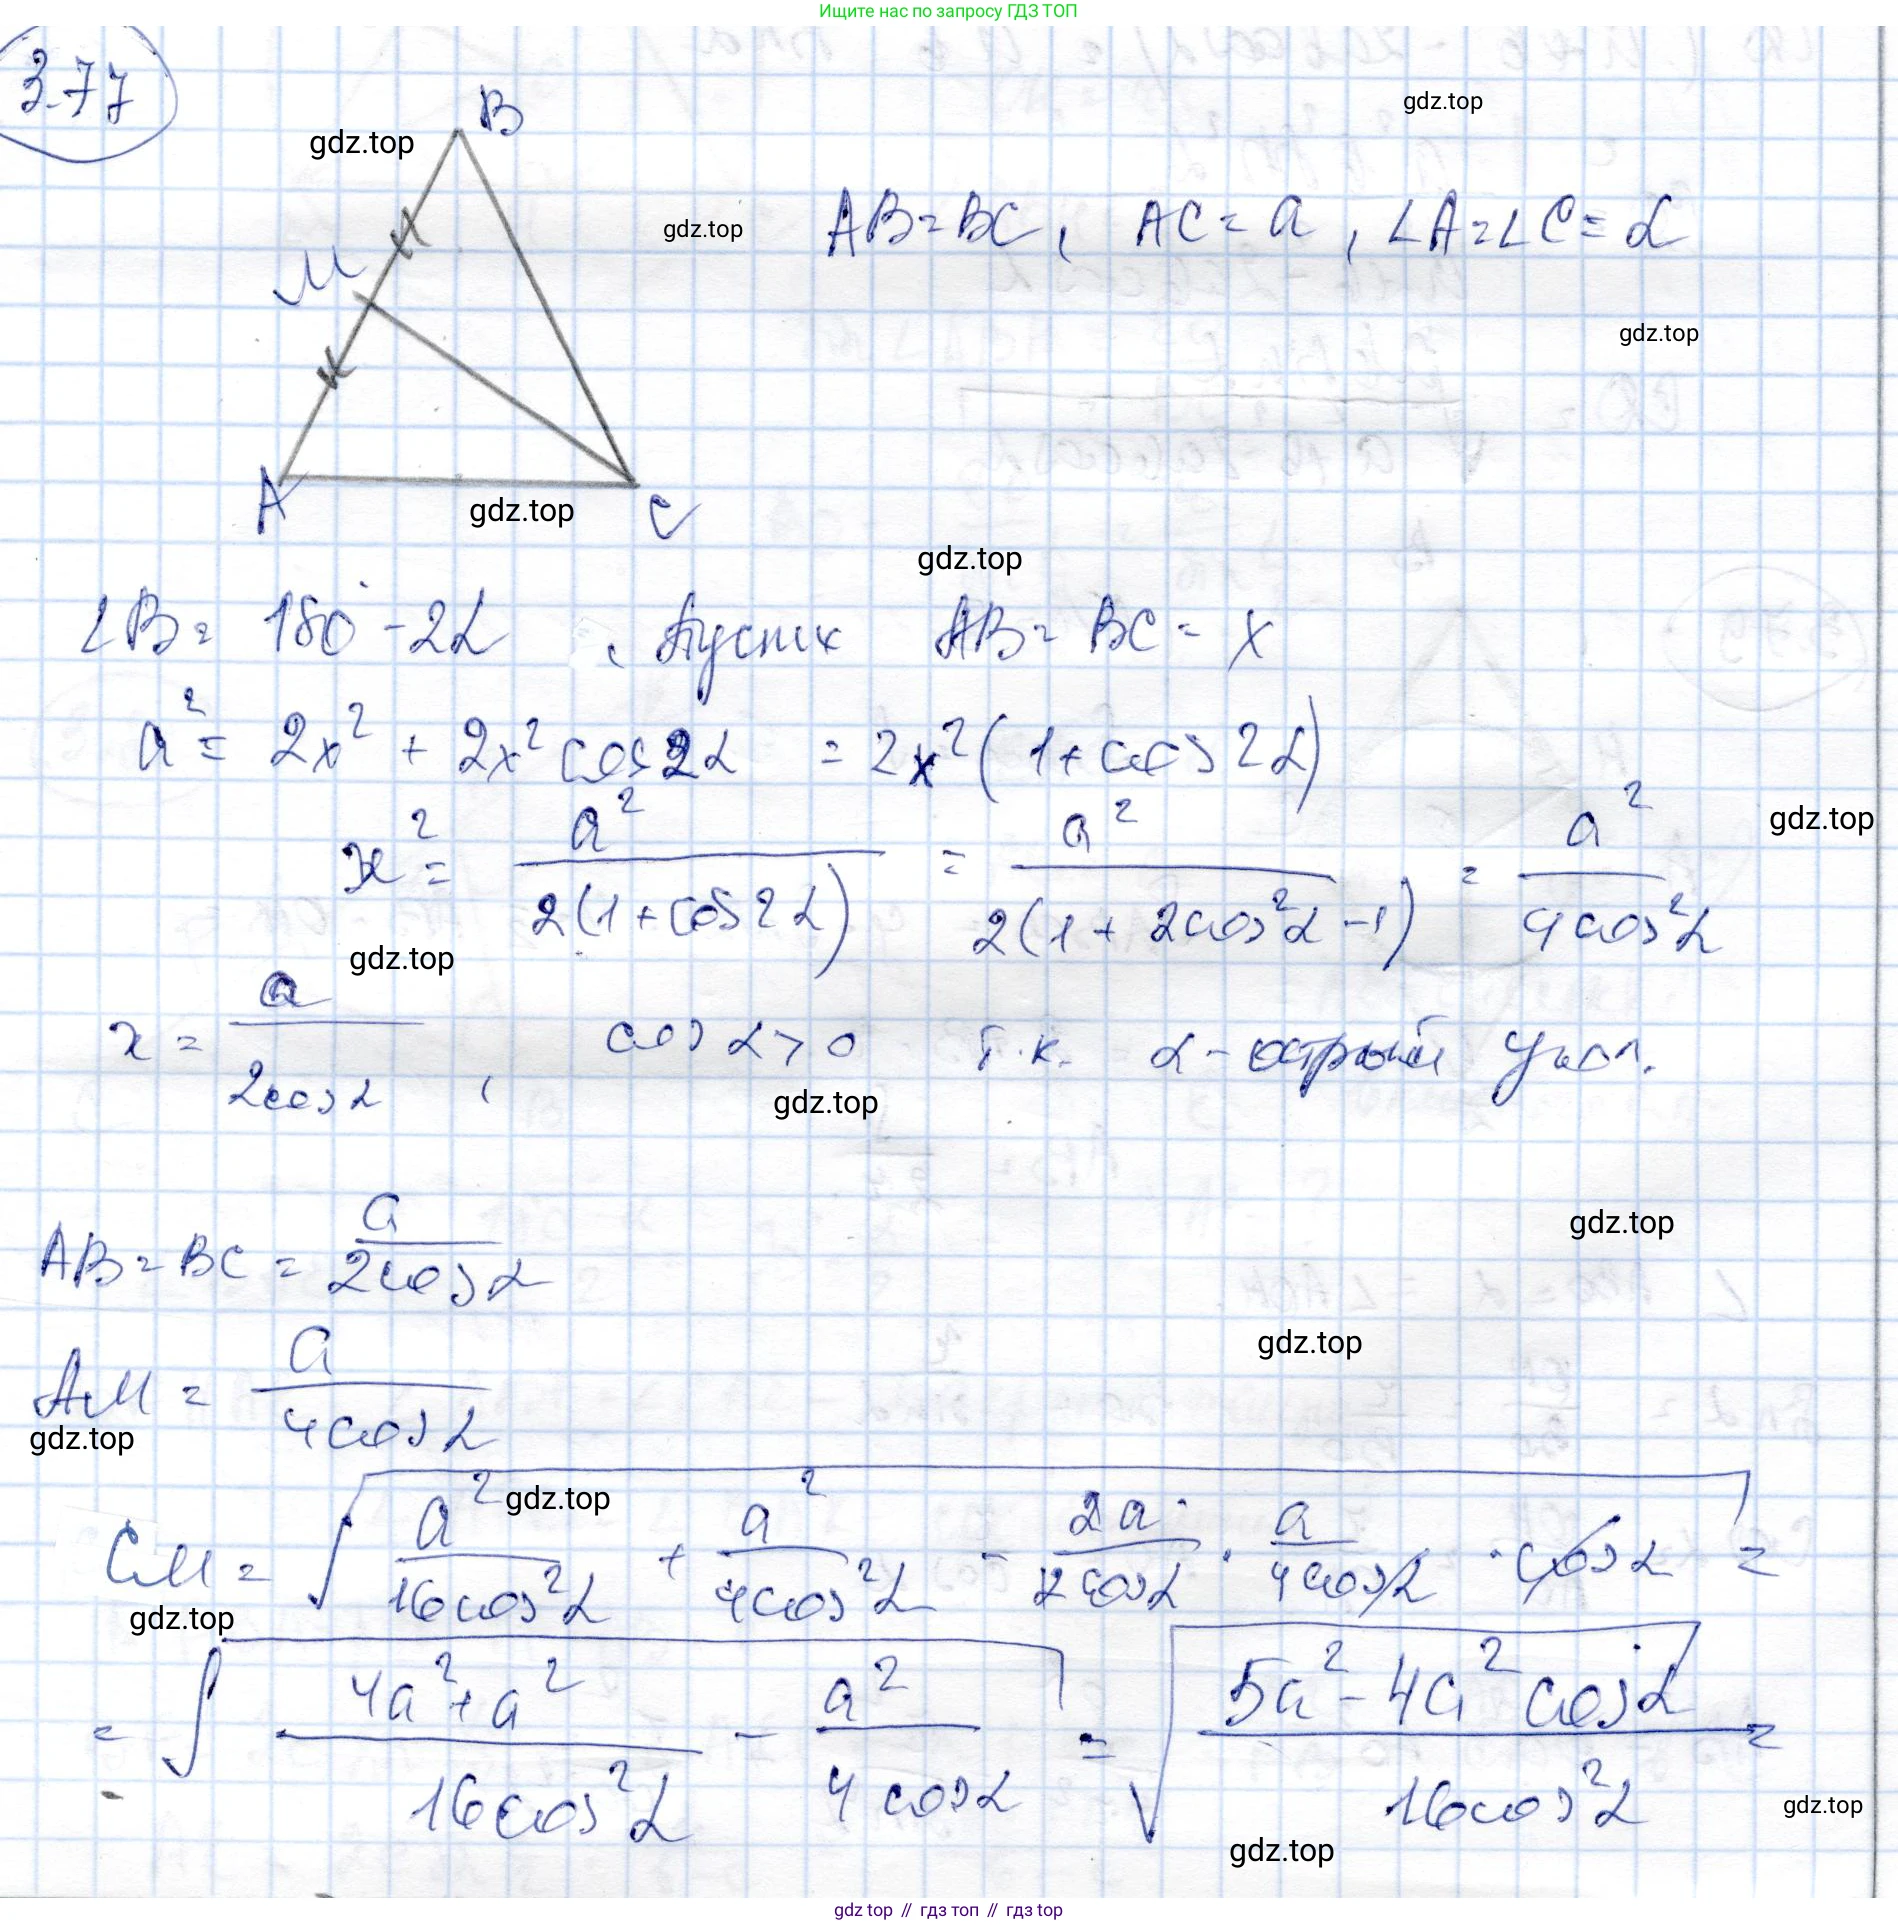 Ищите нас по запросу ГДЗ ТОП
3.77
gdz.top
B
gdz.top
gdz.top
AB=BC, AC=a, ∠A=∠C=α
M
gdz.top
A
gdz.top
C
gdz.top
∠B= 180°-2α, Пусть AB=BC=x
a²= 2x² + 2x² cos2α = 2x²(1+cos2α)
x² = a²/(2(1+cos2α)) = a²/(2(1+2cos²α-1)) = a²/(4cos²α)
gdz.top
gdz.top
x = a/(2cosα), cosα>0 т.к. α-острый угол.
gdz.top
gdz.top
AB=BC = a/(2cosα)
gdz.top
AM = a/(4cosα)
gdz.top
gdz.top
CM = √(a²/(16cos²α) + a²/(4cos²α) - 2a/(2cosα) · a/(4cosα) · cosα) =
gdz.top
= √((4a²+a²)/(16cos²α) - a²/(4cosα)) = √((5a²-4a²cosα)/(16cos²α)) =
gdz.top
gdz.top
gdz top // гдз топ // гдз top